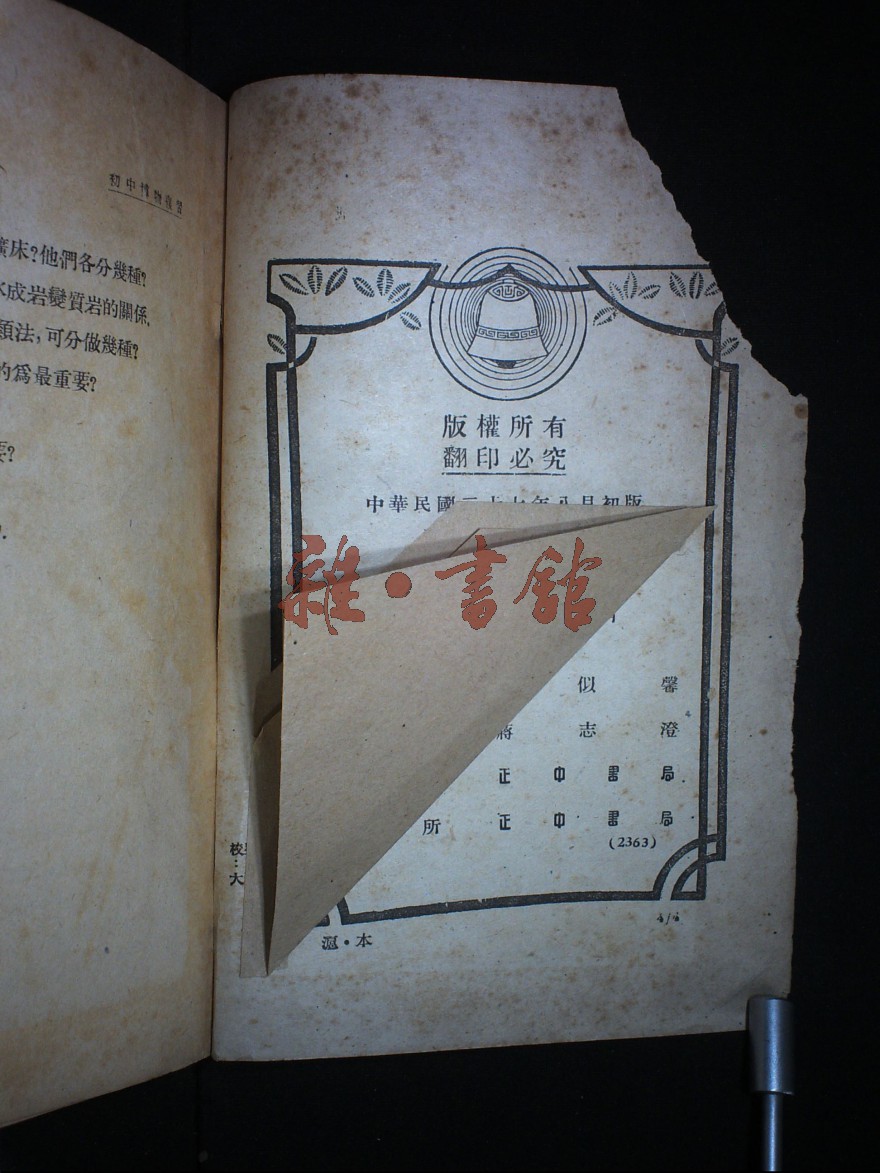 初中博物復習
床?他們各分幾種?
水成岩變質岩的關係,
類法,可分做幾種?
的爲最重要?
?
版權所有
翻印必究
中華民國三十七年八月初版
雜·書館
似馨
蔣志澄
正中書局
所正中書局
(2363)
校
大
滬·本
4/4